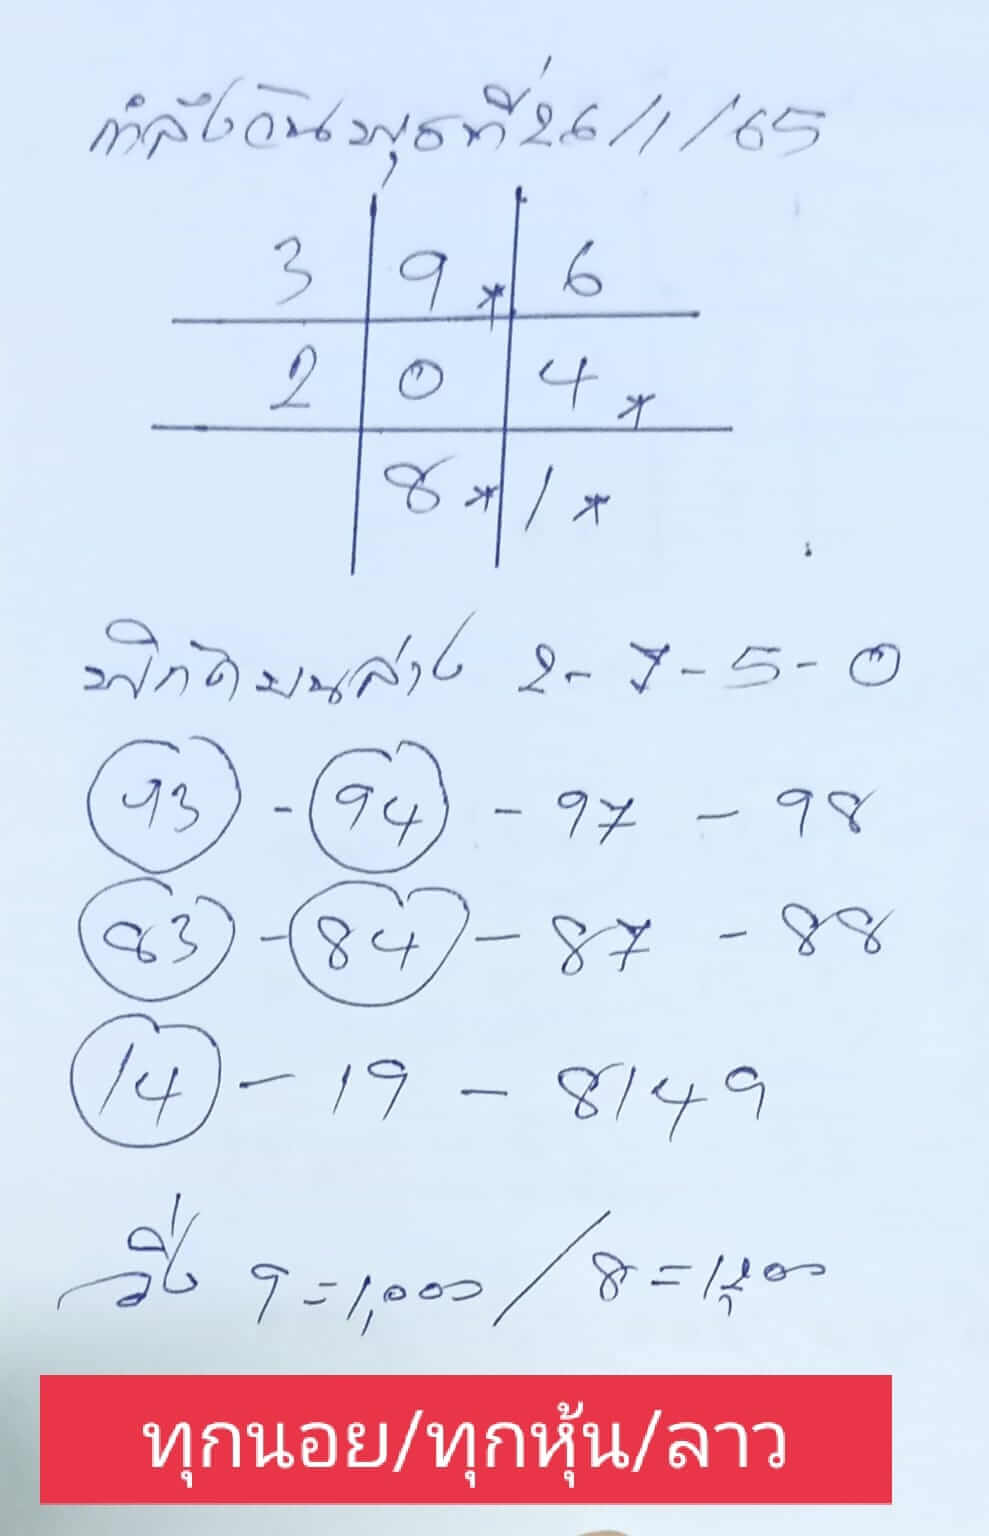 กำลังวันพุธที่ 26/1/65
3 9* 6
2 0 4*
8* 1*
พิกัดบนล่าง 2-7-5-0
93 - 94 - 97 - 98
83 - 84 - 87 - 88
14 - 19 - 8149
วิ่ง 9=1,000 / 8=1,200
ทุกนอย/ทุกหุ้น/ลาว